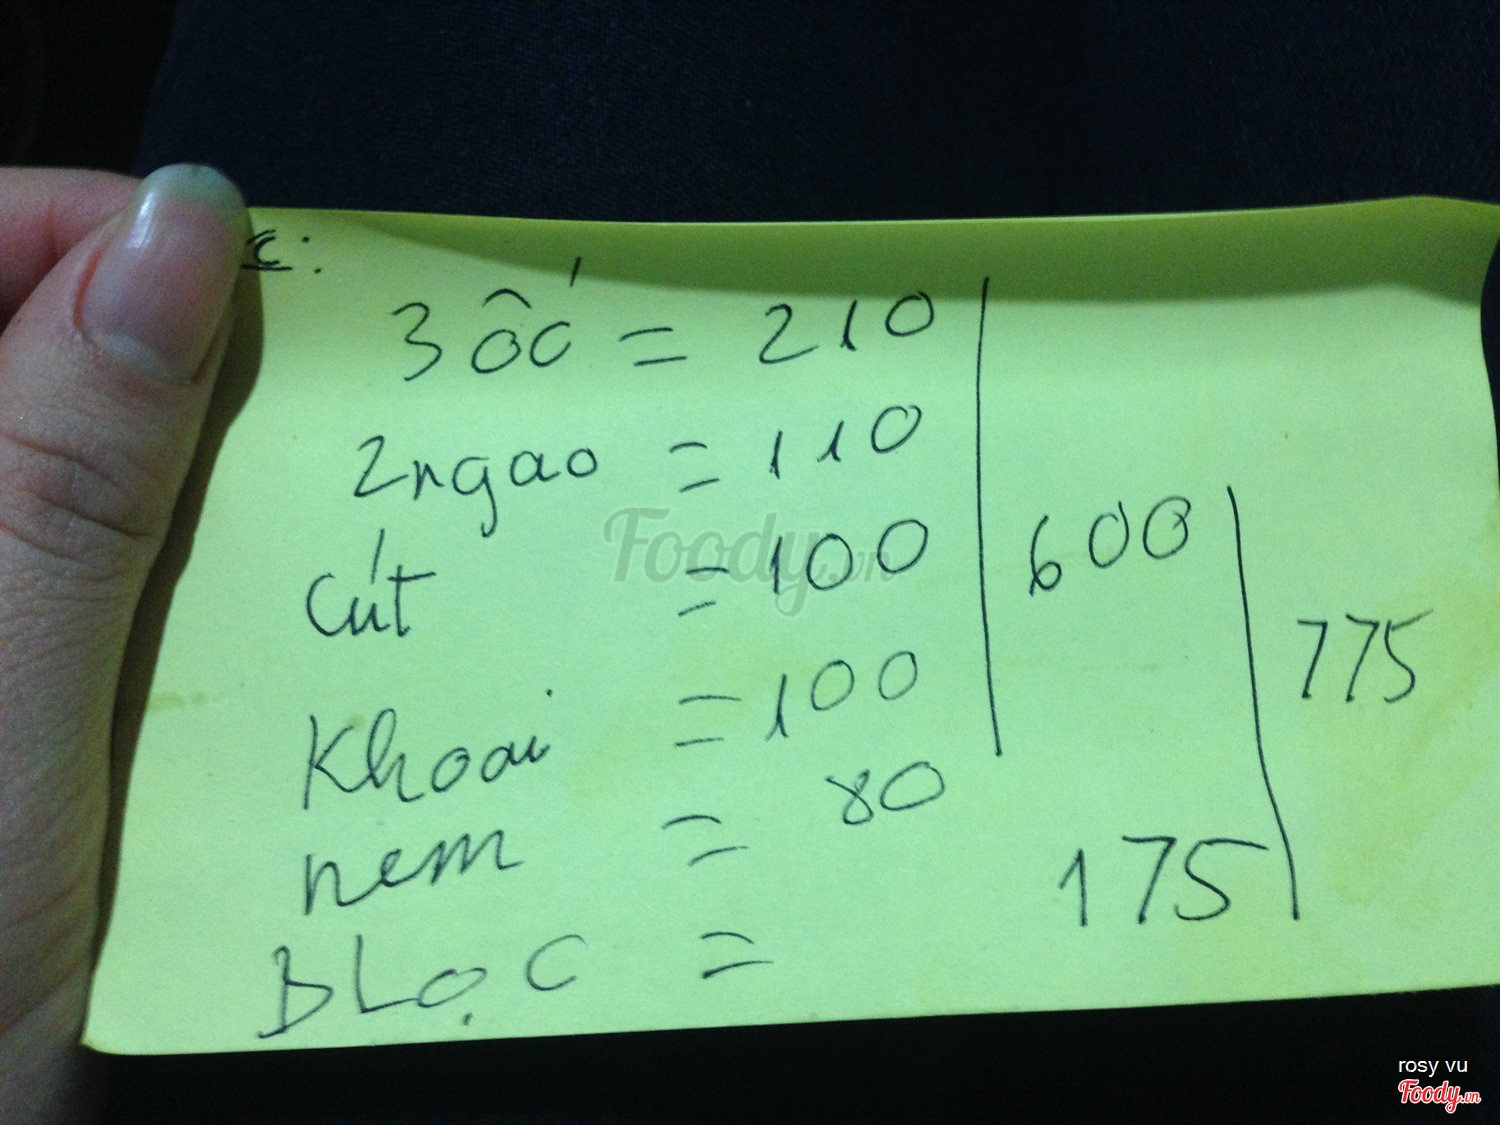 c:
3 ốc = 210
2 ngao = 110
Cút = 100
600
Khoai = 100
775
nem = 80
175
B Lọc =
Foody.vn
rosy vu
Foody.vn